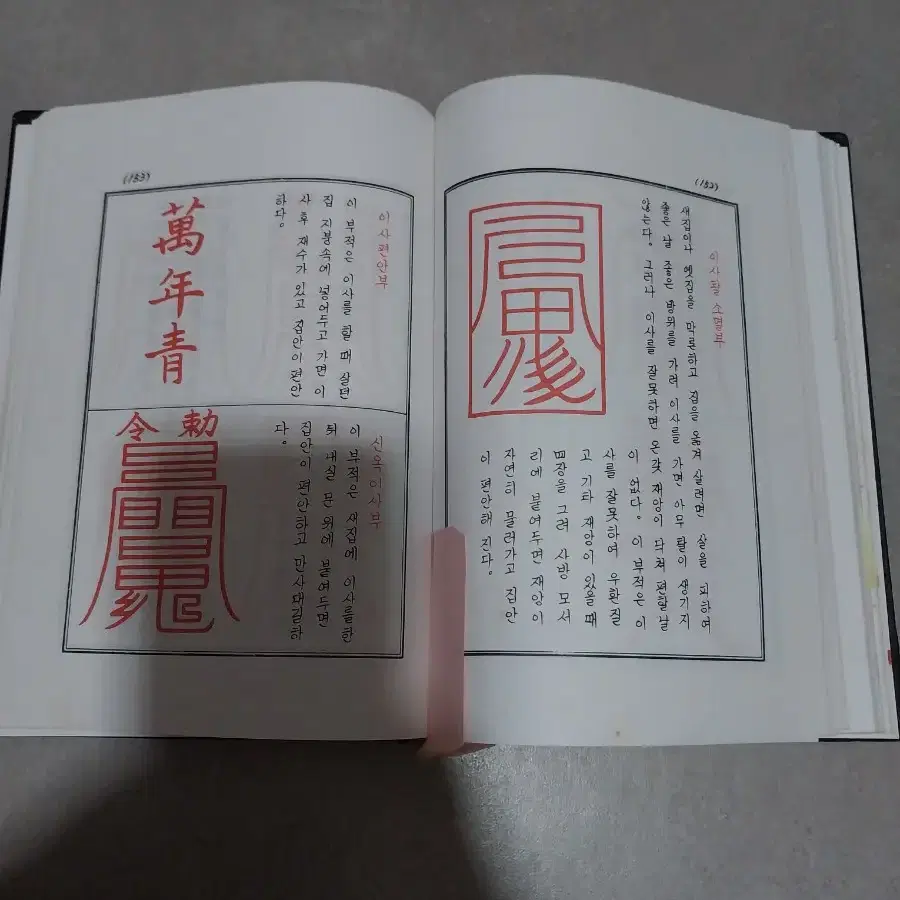 (152)
이사탈 소멸부
새집이나 헷집을 막론하고 집을 옮겨 살려면 살을 피하여
좋은 날 좋은 방위를 가려 이사를 가면 아무 탈이 생기지
않는다. 그러나 이사를 잘못하면 온갖 재앙이 닥쳐 편할날
이 없다. 이 부적은 이
사를 잘못하여 우환질
고 기타 재앙이 있을때
四장을 그려 사방 모서
리에 붙여두면 재앙이
자연히 물러가고 집안
이 편안해 진다.
(153)
이사편안부
이 부적은 이사를 할 때 살던
집 지붕속에 넣어두고 가면 이
사후 재수가 있고 집안이 편안
하다.
萬年青
신옥이사부
이 부적은 새집에 이사를한
뒤 내실 문 위에 붙여두면
집안이 편안하고 만사대길하
다.
勅令